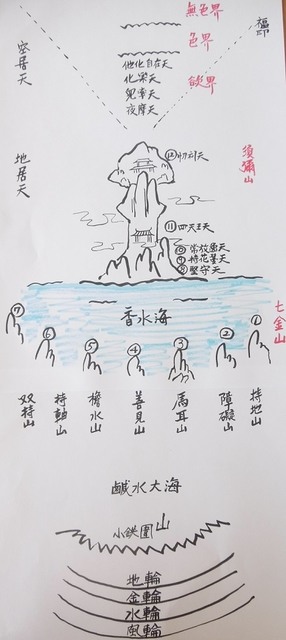 無色界
色界
欲界
空居天
他化自在天
化樂天
兜率天
夜摩天
地居天
⑫忉利天
須彌山
⑪四天王天
⑩常放逸天
⑨持花鬘天
⑧堅守天
香水海
七金山
⑦
⑥
⑤
④
③
②
①
双持山
持軸山
檐水山
善見山
馬耳山
障礙山
持地山
鹹水大海
小鉄圍山
地輪
金輪
水輪
風輪